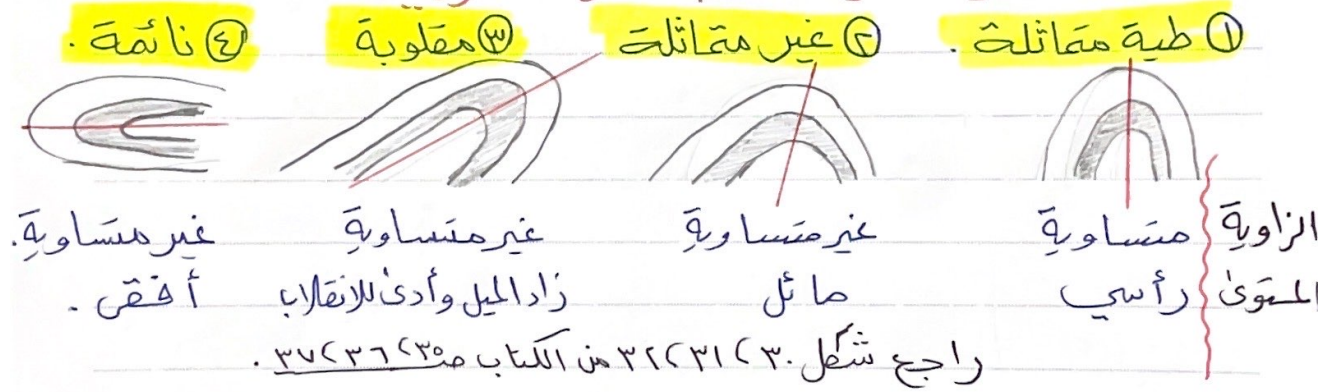 ① طية متماثلة . ② غير متماثلة ③ مقلوبة ④ نائمة .
الزاوية متساوية غير متساوية غير متساوية غير متساوية .
المستوى رأسي مائل زاد الميل وأدى للانقلاب أفقي .
راجع شكل ٣٠ ، ٣١ ، ٣٢ من الكتاب صـ ٣٥ ، ٣٦ ، ٣٧ .